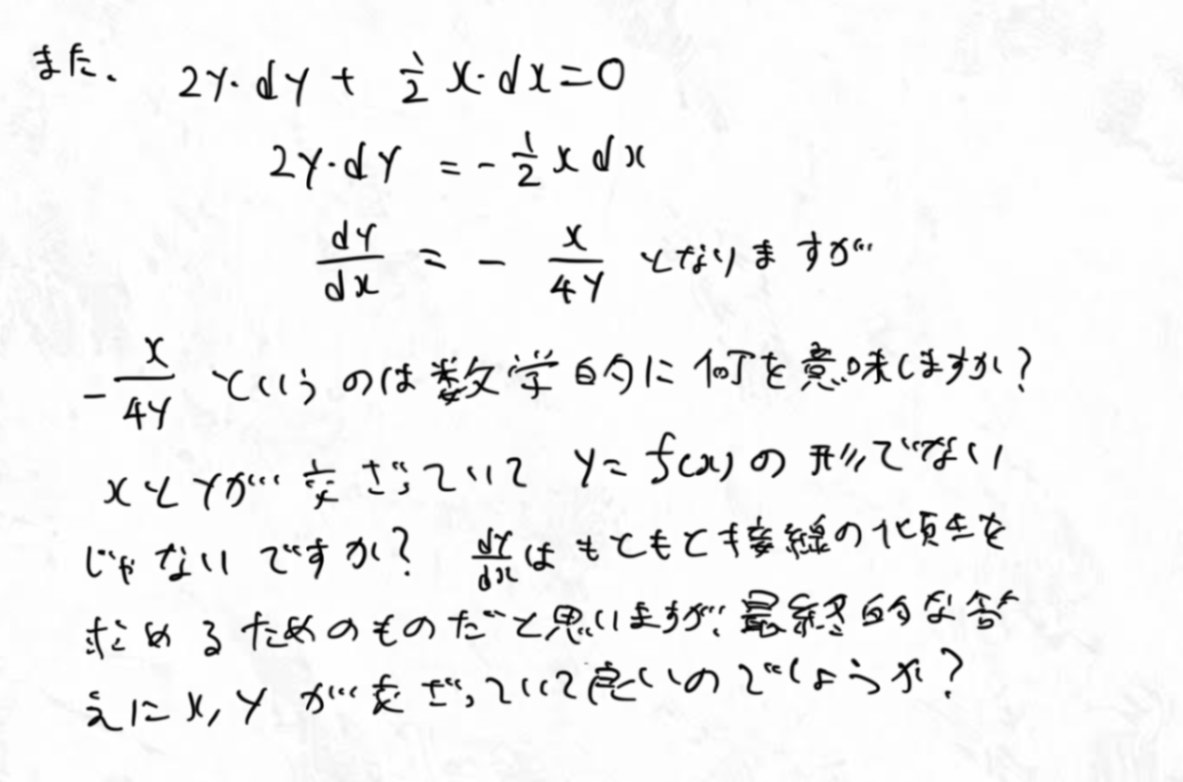 また、 2y・dy + 1/2 x・dx = 0
2y・dy = - 1/2 x dx
dy/dx = - x/4y となりますが
- x/4y というのは数学的に何を意味しますか?
xとyが交ざっていて y = f(x) の形でない
じゃないですか? dy/dx はもともと接線の傾きを
求めるためのものだと思いますが、最終的な答
えに x, y が交ざっていて良いのでしょうか?